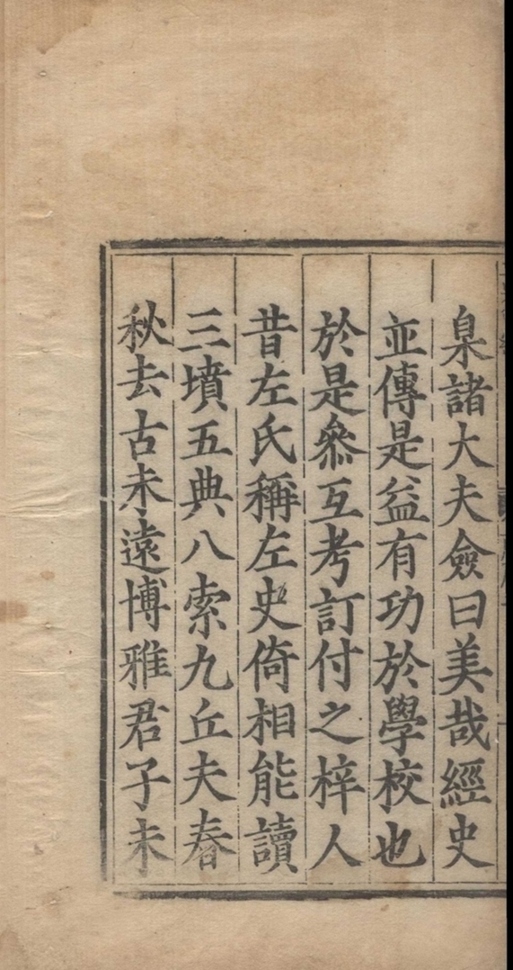 臬諸大夫僉曰美哉經史
並傳是益有功於學校也
於是叅互考訂付之梓人
昔左氏稱左史倚相能讀
三墳五典八索九丘夫春
秋去古未遠博雅君子未